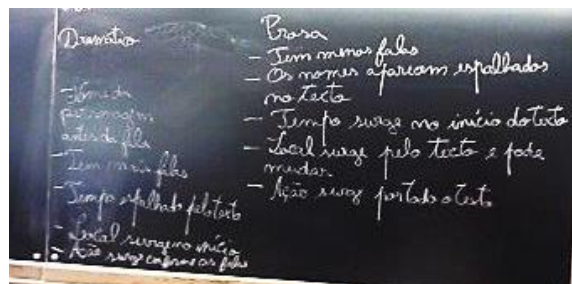 Dramático
- Nome da
personagem
antes da fala
- Tem mais falas
- Tempo espalhado pelo texto
- Local surge no início
- Ação surge conforme as falas
Prosa
- Tem menos falas
- Os nomes aparecem espalhados
no texto
- Tempo surge no início do texto
- Local surge pelo texto e pode
mudar.
- Ação surge por todo o texto